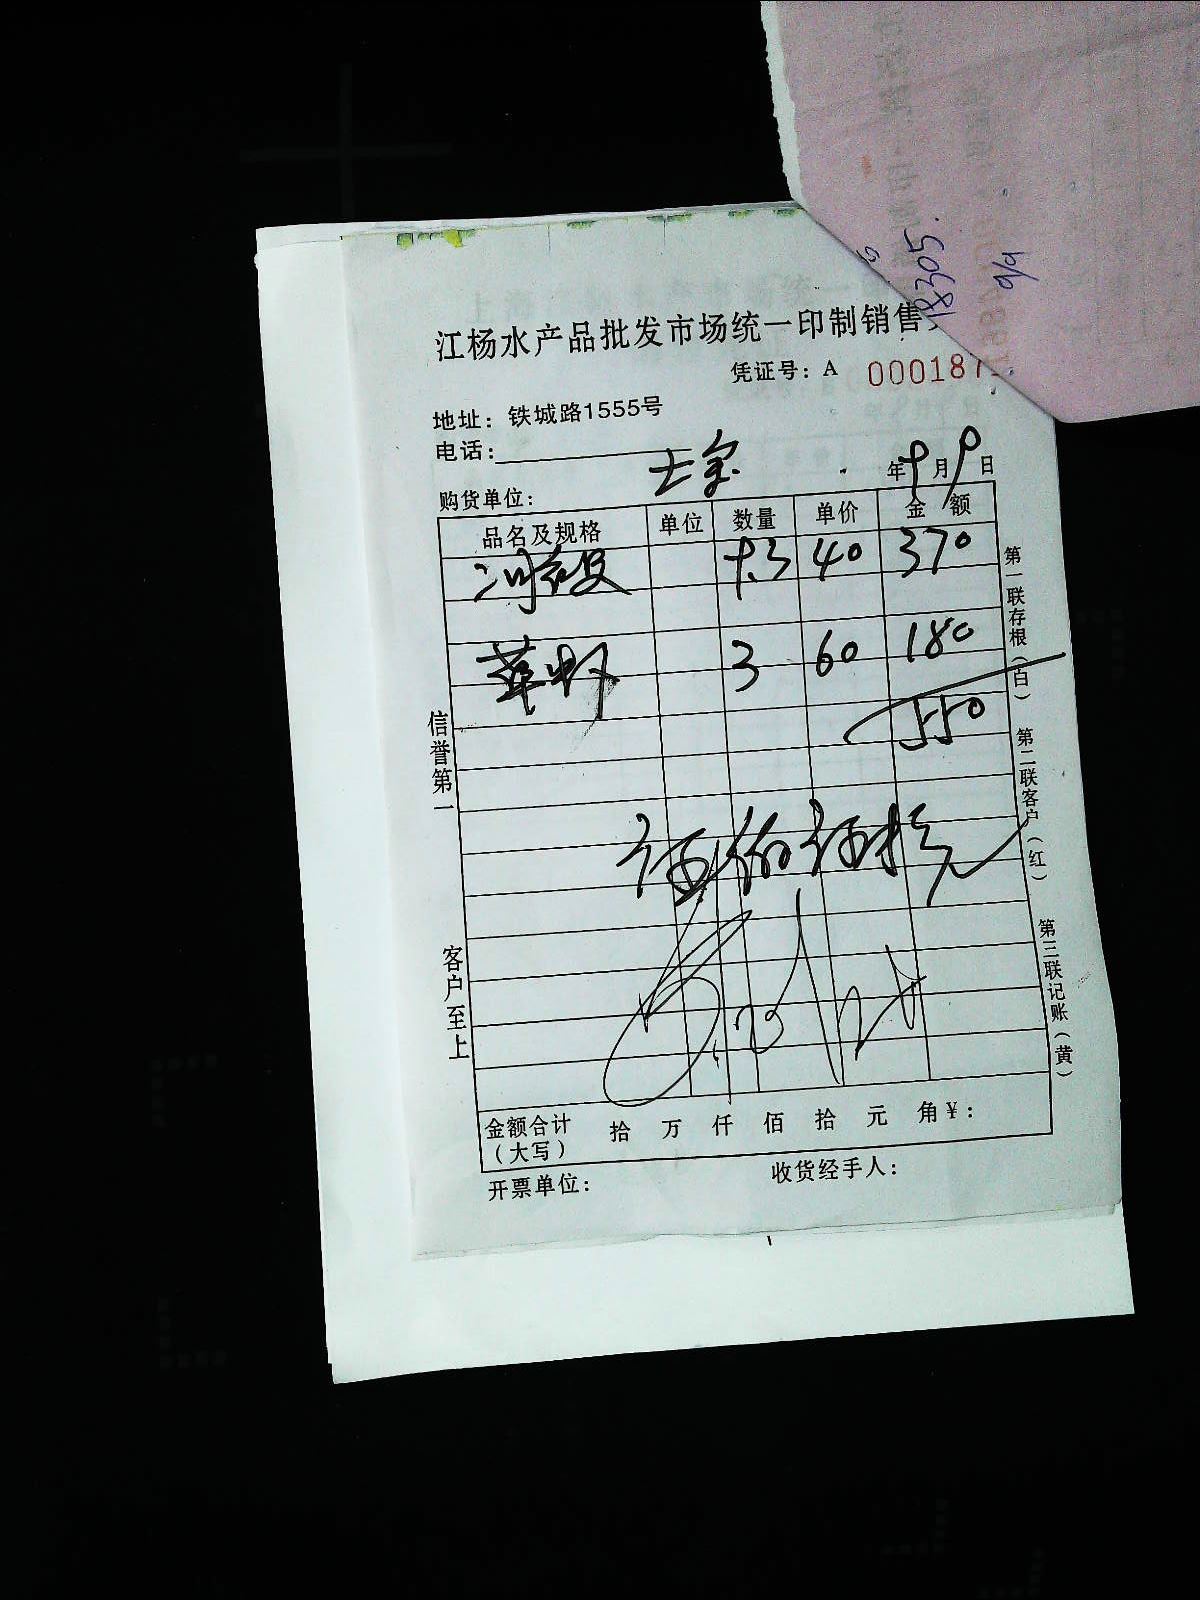 18305.
9/9
江杨水产品批发市场统一印制销售
凭证号：A 000187
地址：铁城路1555号
电话：
购货单位： 年9月9日
品名及规格 单位 数量 单价 金额
9.3 40 370
3 60 180
550
信誉第一
客户至上
第一联存根（白） 第二联客户（红） 第三联记账（黄）
金额合计（大写） 拾 万 仟 佰 拾 元 角 ¥：
开票单位： 收货经手人：